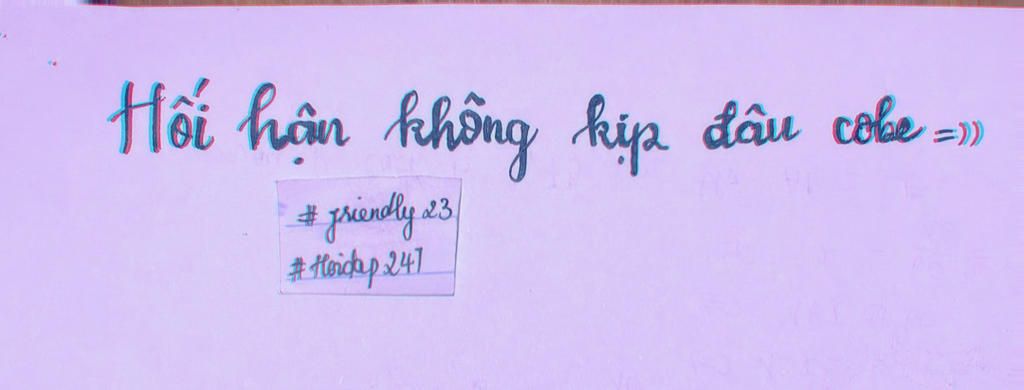 Hối hận không kịp đâu cobe =))
# friendly 23
# Hoidap 247